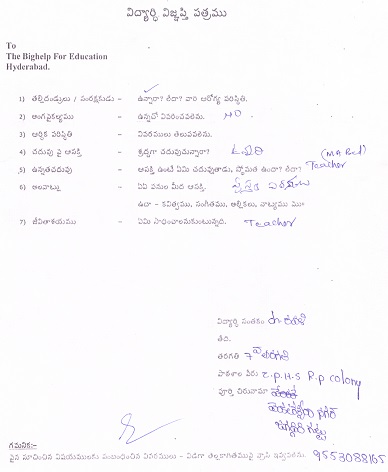 విద్యార్థి విజ్ఞప్తి పత్రము
To
The Bighelp For Education
Hyderabad.
1) తల్లిదండ్రులు / సంరక్షకుడు - ఉన్నారా? లేదా? వారి ఆరోగ్య పరిస్థితి.
2) అంగవైకల్యము - ఉన్నచో వివరించవలెను. NO
3) ఆర్థిక పరిస్థితి - వివరములు తెలుపవలెను.
4) చదువు పై ఆసక్తి - శ్రద్ధగా చదువుచున్నారా? (MA Bed)
5) ఉన్నతచదువు - ఆసక్తి ఉంటే ఏమి చదువుతాడు, స్తోమత ఉందా? లేదా? Teacher
6) అలవాట్లు - ఏఏ పనుల మీద ఆసక్తి.
ఉదా - కవిత్వము, సంగీతము, ఆర్టికలు, నాట్యము
7) జీవితాశయము - ఏమి సాధించాలనుకుంటున్నది. Teacher
విద్యార్థి సంతకం
తేది.
తరగతి 7
పాఠశాల పేరు Z.P.H.S R.P colony
పూర్తి చిరునామా
గమనిక:-
పైన సూచించిన విషయములకు సంబంధించిన వివరములు - విడిగా తెల్లకాగితముపై వ్రాసి ఇవ్వవలెను. 9553088165